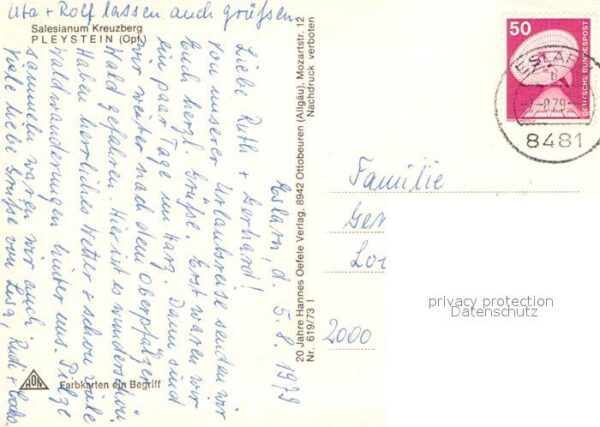 Uta + Rolf lassen auch grüßen
Salesianum Kreuzberg
PLEYSTEIN (Opf.)
Eslarn, d. 5.8.1979
Liebe Ruth + Gerhard!
Von unserer Urlaubsreise senden wir
Euch herzl. Grüße. Erst waren wir
ein paar Tage im Harz. Dann sind
wir weiter nach dem Oberpfälzer
Wald gefahren. Hier ist es wunderschön.
Haben herrliches Wetter + schon viele
Waldwanderungen hinter uns. Pilze
sammeln waren wir auch.
Viele liebe Grüße von Lisa, Rudi +
AON
Farbkarten ein Begriff
20 Jahre Hannes Oefele Verlag, 8942 Ottobeuren (Allgäu), Mozartstr. 12
Nr. 619/73 I
Nachdruck verboten
50
DEUTSCHE BUNDESPOST
ESLARN
-8.79
8481
Familie
Ger
2000
privacy protection
Datenschutz